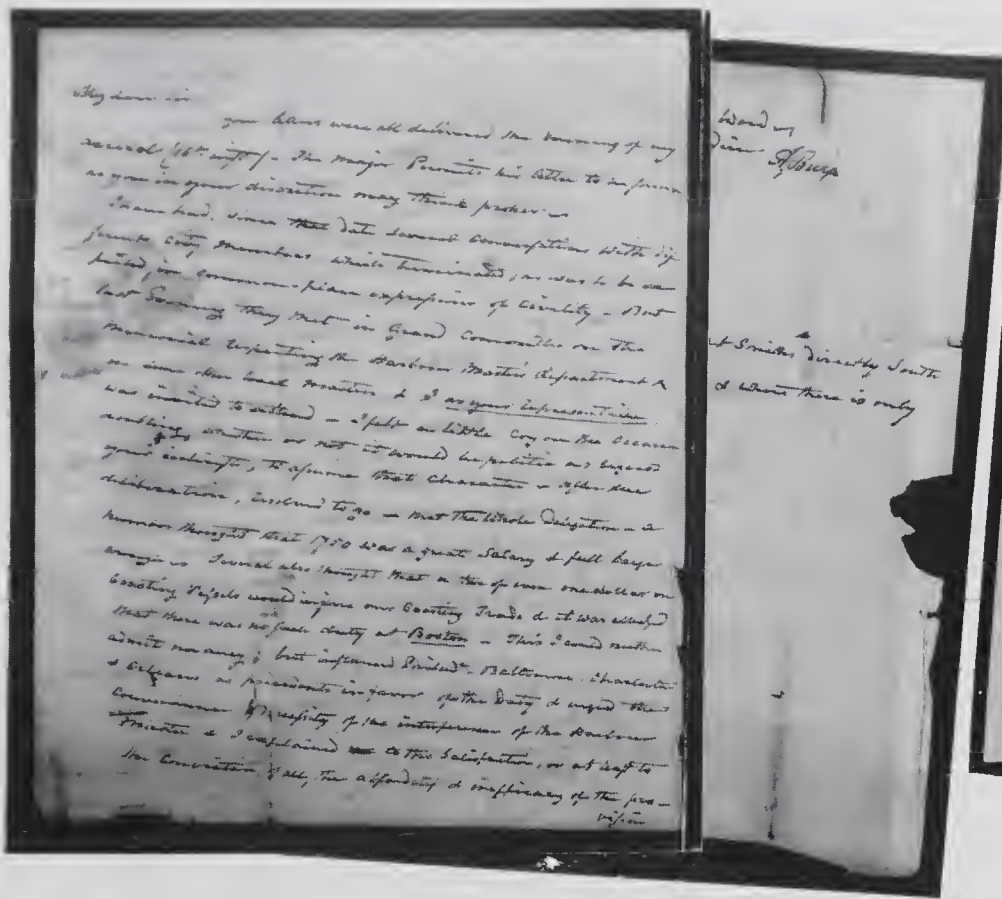 My dear sir
your letters were all delivered the evening of my
arrival (15th inst) - The Major Permits his letter to
as you in your discretion may think proper
I have had, since that date several Conversations with dif
ferent City Members which terminated, as was to be ex
pected, in common place expressions of Civility - But
last Evening they met in Grand Committee on the
Memorial respecting the Harbour Master's department &
on some other local matters & I as your representative
was invited to attend - I felt a little Coy on the occasion
doubting whether or not it would be politic as it respects
your interests, to assume that Character - after due
deliberation, resolved to go - met the whole Delegation - a
number thought that 1750 was a great Salary & full large
enough - Several also thought that a tax of even one dollar on
Coasting Vessels would injure our Coasting Trade & it was alledged
that there was no such duty at Boston - This I could neither
admit nor deny; but instanced Philad. Baltimore Charleston
& Orleans as precedents in favor of the Duty & urged the
Convenience & necessity of the interference of the Harbour
Master & I explained to the Satisfaction, or at least to
the Conviction of all, the absurdity & inefficiency of the pro-
vision
word as
A Burr
at Smiths directly South
& whom there is only